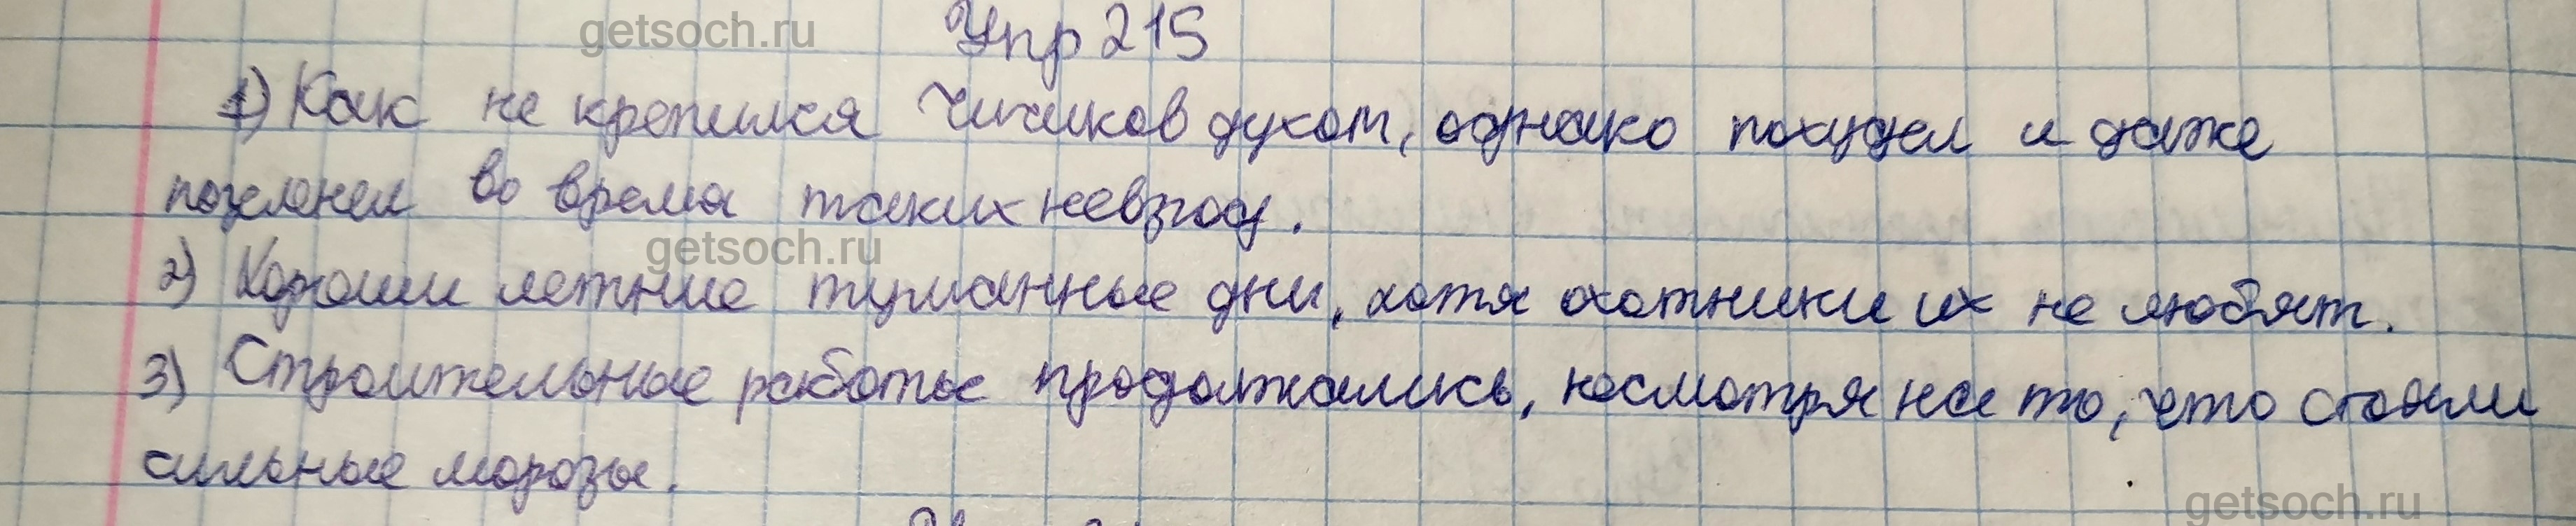 getsoch.ru
Упр 215
1) Как не крепился Чичиков духом, однако похудел и даже
позеленел во время таких невзгод.
getsoch.ru
2) Хороши летние туманные дни, хотя охотники их не любят.
3) Строительные работы продолжались, несмотря на то, что стояли
сильные морозы.
getsoch.ru